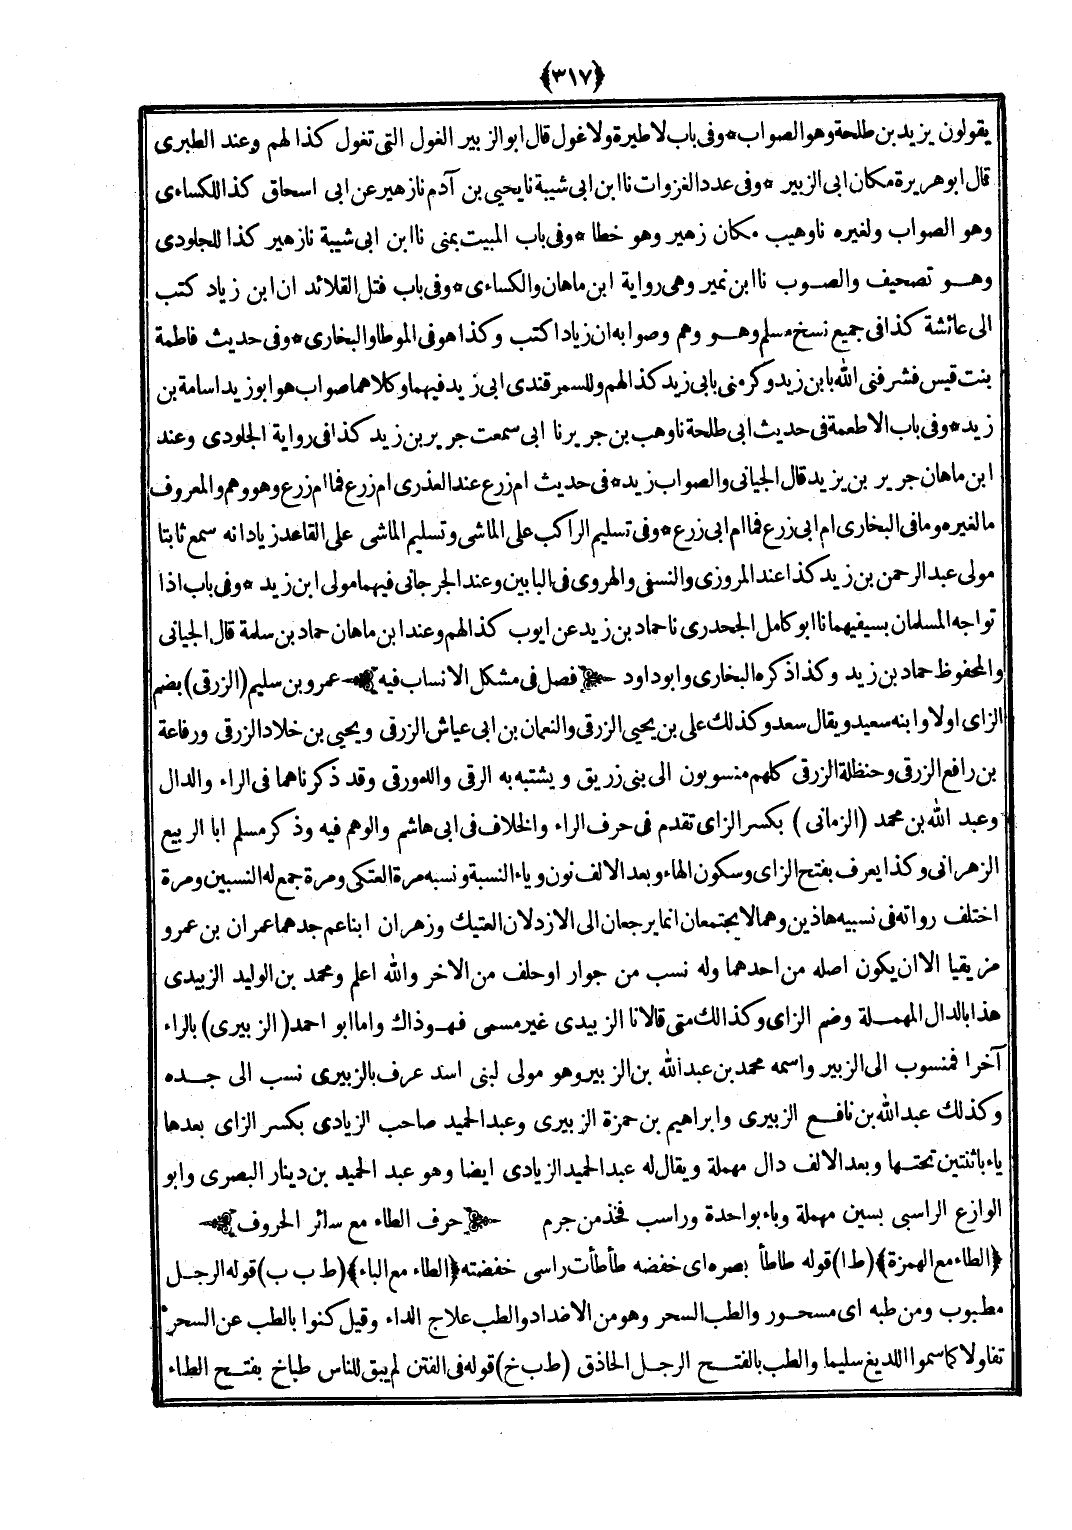 ﴿٣١٧﴾
يقولون يزيد بن طلحة وهو الصواب * وفى باب لا طيرة ولا غول قال ابو الزبير الغول التى تغول كذا لهم وعند الطبرى
قال ابو هريرة مكان ابى الزبير * وفى عدد الغزوات نا ابن ابى شيبة نا يحيى بن آدم نا زهير عن ابى اسحاق كذا للكساءى
وهو الصواب ولغيره نا وهيب مكان زهير وهو خطا * وفى باب المبيت بمنى نا ابن ابى شيبة نا زهير كذا للجلودى
وهو تصحيف والصوب نا ابن نمير وهى رواية ابن ماهان والكساءى * وفى باب فتل القلائد ان ابن زياد كتب
الى عائشة كذا فى جميع نسخ مسلم وهو وهم وصوابه ان زيادا كتب وكذا هو فى الموطا والبخارى * وفى حديث فاطمة
بنت قيس فشرفنى الله بابن زيد وكرمنى بابى زيد كذا لهم وللسمرقندى ابى زيد فيهما وكلاهما صواب هو ابو زيد اسامة بن
زيد * وفى باب الاطعمة فى حديث ابى طلحة نا وهب بن جرير نا ابى سمعت جرير بن زيد كذا فى رواية الجلودى وعند
ابن ماهان جرير بن يزيد قال الجيانى والصواب زيد * فى حديث ام زرع عند العذرى ام زرع فما ام زرع وهو وهم والمعروف
ما لغيره وما فى البخارى ام ابى زرع فما ام ابى زرع * وفى تسليم الراكب على الماشى وتسليم الماشى على القاعد زياد انه سمع ثابتا
مولى عبد الرحمن بن زيد كذا عند المروزى والنسفى والهروى فى البابين وعند الجرجانى فيهما مولى ابن زيد * وفى باب اذا
تواجه المسلمان بسيفيهما نا ابو كامل الجحدرى نا حماد بن زيد عن ايوب كذا لهم وعند ابن ماهان حماد بن سلمة قال الجيانى
والمحفوظ حماد بن زيد وكذا ذكره البخارى وابو داود فصل فى مشكل الانساب فيه عمرو بن سليم (الزرقى) بضم
الزاى اولا وابنه سعيد ويقال سعد وكذلك على بن يحيى الزرقى والنعمان بن ابى عياش الزرقى ويحيى بن خلاد الزرقى ورفاعة
بن رافع الزرقى وحنظلة الزرقى كلهم منسوبون الى بنى زريق ويشتبه به الرقى والدورقى وقد ذكرناهما فى الراء والدال
وعبد الله بن محمد (الزمانى) بكسر الزاى تقدم فى حرف الراء والخلاف فى ابى هاشم والوهم فيه وذكر مسلم ابا الربيع
الزهرانى وكذا يعرف بفتح الزاى وسكون الهاء وبعد الالف نون وياء النسبة ونسبه مرة العتكى ومرة جمع له النسبين ومرة
اختلف رواته فى نسبيه هاذين وهما لا يجتمعان انما يرجعان الى الازد لان العتيك وزهران ابنا عم جدهما عمران بن عمرو
مزيقيا الا ان يكون اصله من احدهما وله نسب من جوار او حلف من الاخر والله اعلم ومحمد بن الوليد الزبيدى
هذا بالدال المهملة وضم الزاى وكذالك متى قالا نا الزبيدى غير مسمى فهو ذاك واما ابو احمد (الزبيرى) بالراء
آخرا فمنسوب الى الزبير واسمه محمد بن عبد الله بن الزبير وهو مولى لبنى اسد عرف بالزبيرى نسب الى جده
وكذلك عبد الله بن نافع الزبيرى وابراهيم بن حمزة الزبيرى وعبد الحميد صاحب الزيادى بكسر الزاى بعدها
ياء باثنتين تحتها وبعد الالف دال مهملة ويقال له عبد الحميد الزيادى ايضا وهو عبد الحميد بن دينار البصرى وابو
الوازع الراسبى بسين مهملة وباء بواحدة وراسب فخذ من جرم حرف الطاء مع سائر الحروف
﴿الطاء مع الهمزة﴾ (ط ا) قوله طاطأ بصره اى خفضه طأطأت راسى خفضته ﴿الطاء مع الباء﴾ (ط ب ب) قوله الرجل
مطبوب ومن طبه اى مسحور والطب السحر وهو من الاضداد والطب علاج الداء وقيل كنوا بالطب عن السحر
تفاولا كما سموا اللديغ سليما والطب بالفتح الرجل الحاذق (ط ب خ) قوله فى الفتن لم يبق للناس طباخ بفتح الطاء